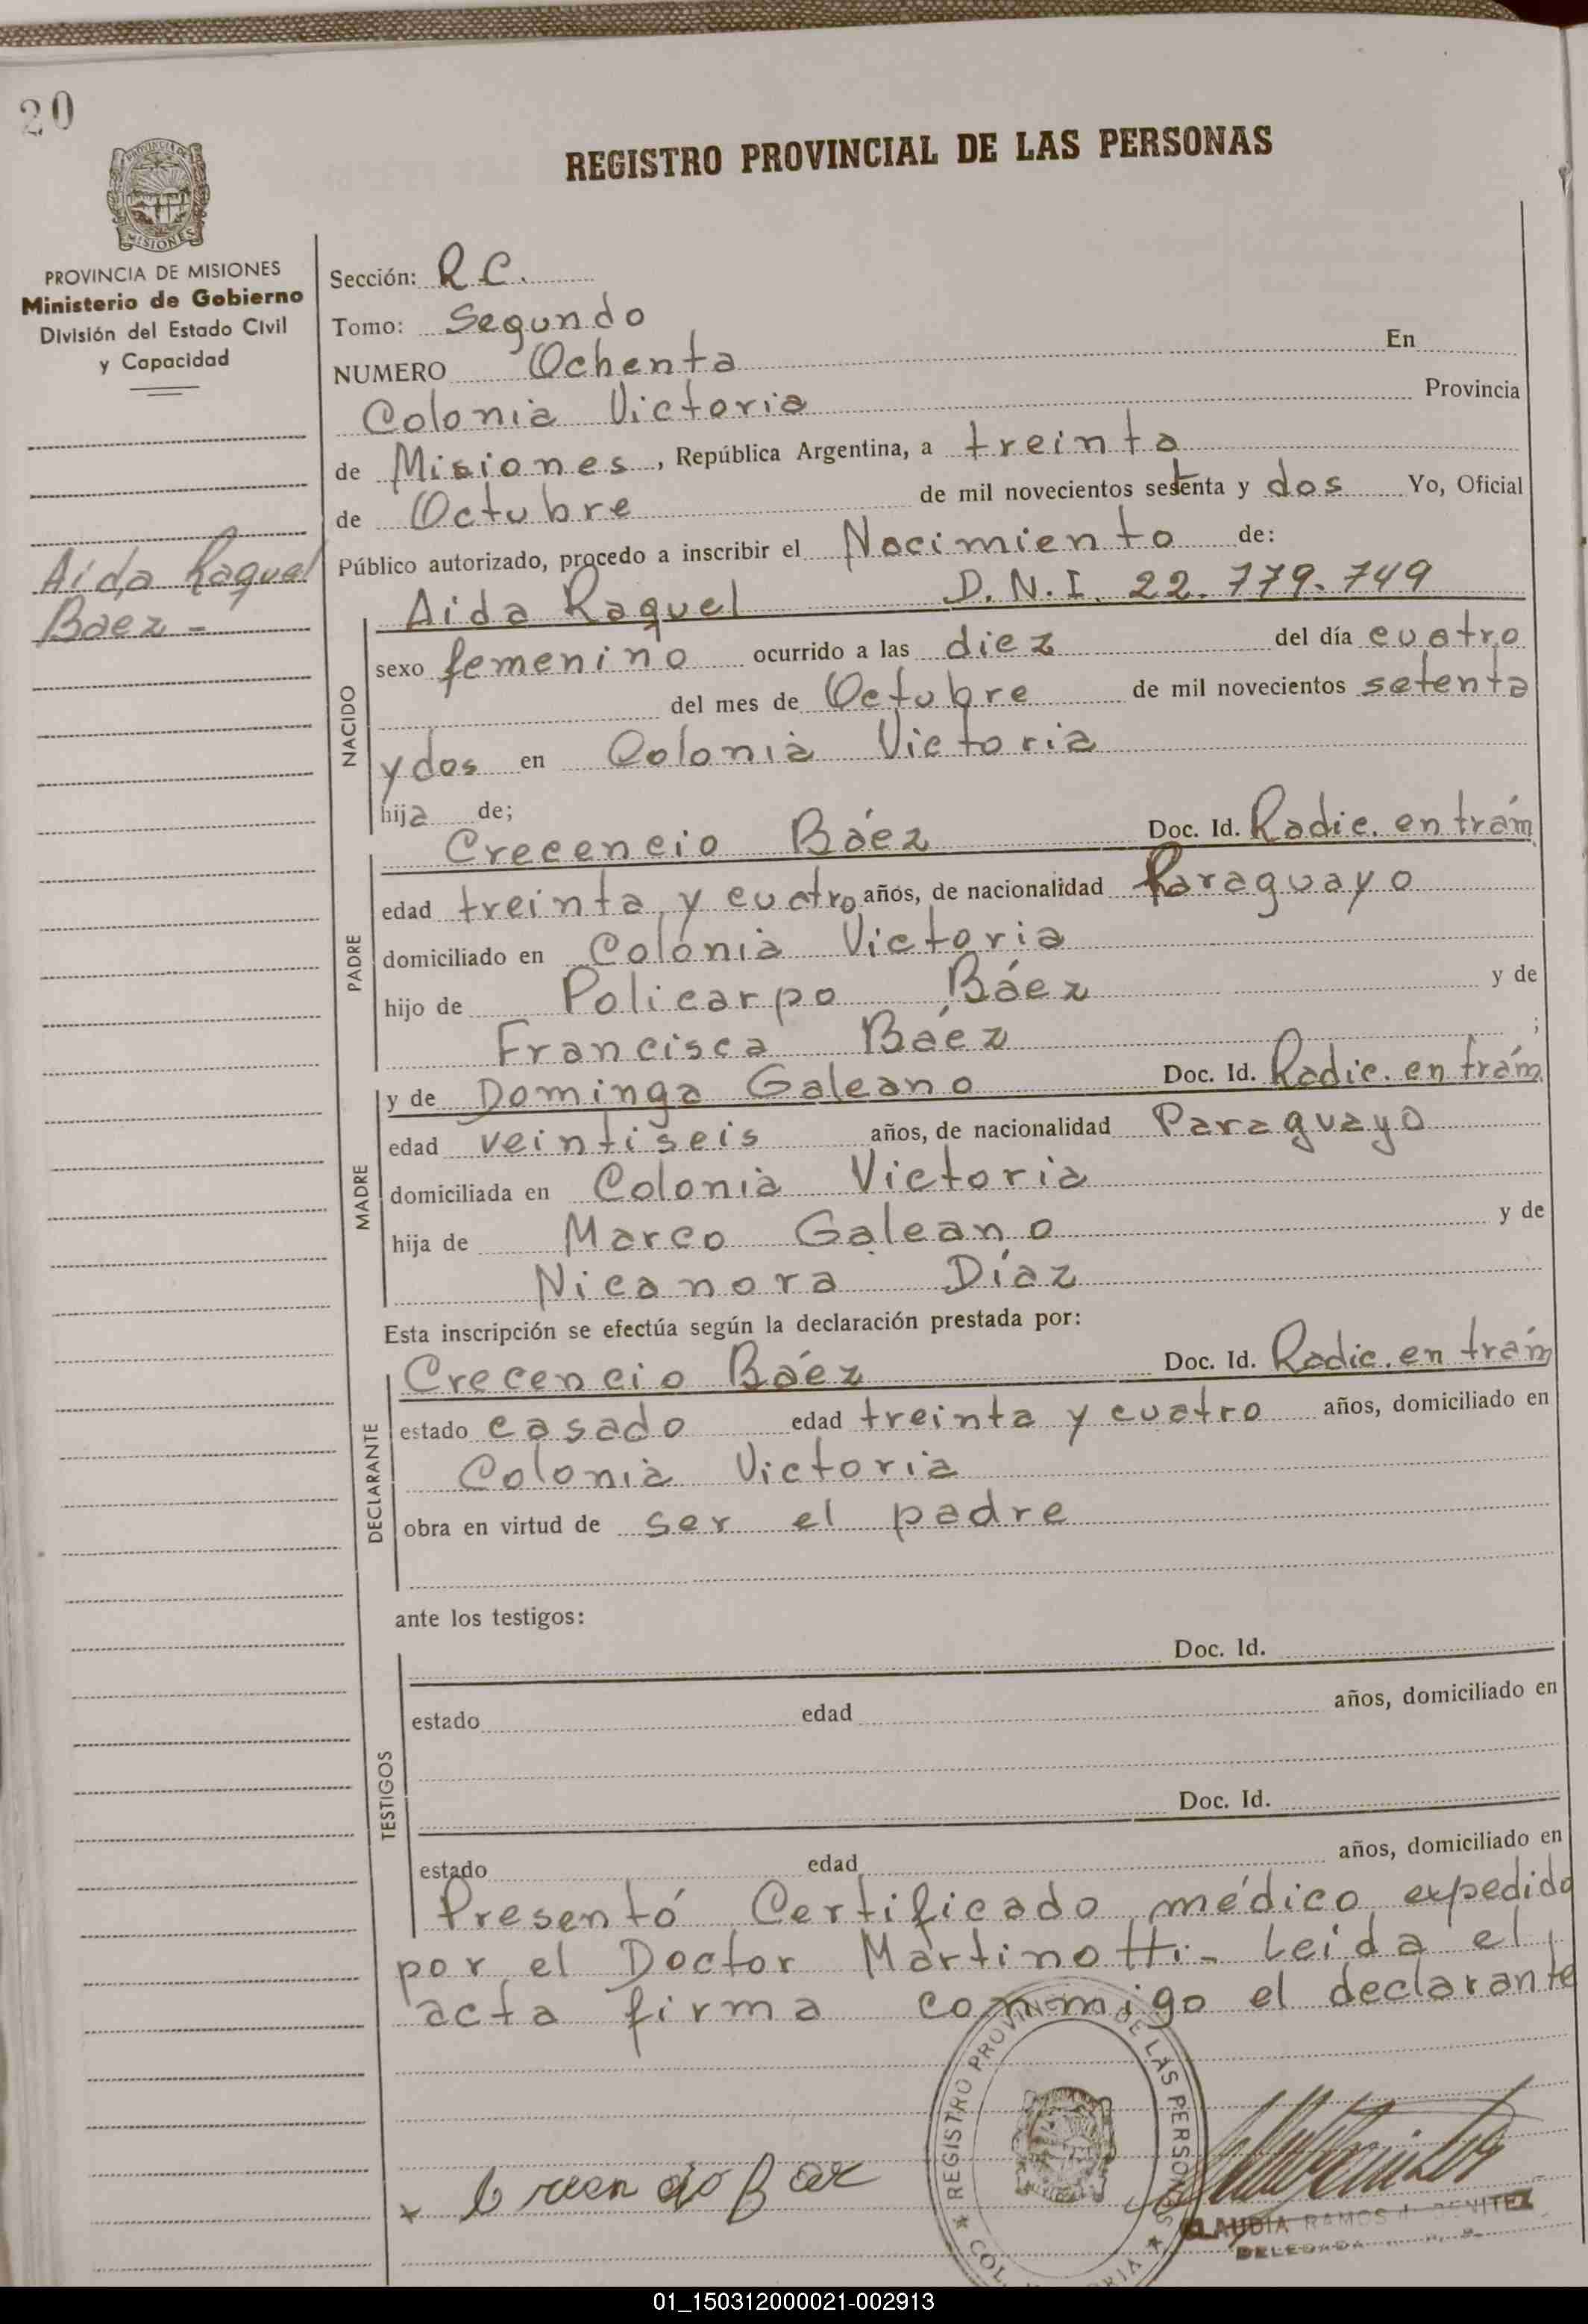 20
REGISTRO PROVINCIAL DE LAS PERSONAS
MISIONES
PROVINCIA DE MISIONES
Ministerio de Gobierno
División del Estado Civil
y Capacidad
Aida Raquel
Baez -
Sección: R.C.
Tomo: Segundo
NUMERO Ochenta En
Colonia Victoria Provincia
de Misiones, República Argentina, a treinta
de Octubre de mil novecientos setenta y dos Yo, Oficial
Público autorizado, procedo a inscribir el Nacimiento de:
Aida Raquel D.N.I. 22.779.749
NACIDO
sexo femenino ocurrido a las diez del día cuatro
del mes de Octubre de mil novecientos setenta
y dos en Colonia Victoria
hija de;
PADRE
Crecencio Báez Doc. Id. Radic. en trám
edad treinta y cuatro años, de nacionalidad Paraguayo
domiciliado en Colonia Victoria
hijo de Policarpo Báez y de
Francisca Báez ;
MADRE
y de Dominga Galeano Doc. Id. Radic. en trám
edad veintiseis años, de nacionalidad Paraguayo
domiciliada en Colonia Victoria
hija de Marco Galeano y de
Nicanora Díaz
Esta inscripción se efectúa según la declaración prestada por:
DECLARANTE
Crecencio Báez Doc. Id. Radic. en trám
estado casado edad treinta y cuatro años, domiciliado en
Colonia Victoria
obra en virtud de ser el padre
ante los testigos:
TESTIGOS
Doc. Id.
estado edad años, domiciliado en
Doc. Id.
estado edad años, domiciliado en
Presentó Certificado médico expedido
por el Doctor Martinotti- Leida el
acta firma conmigo el declarante
REGISTRO PROVINCIAL DE LAS PERSONAS
CLAUDIA RAMOS BENITEZ
DELEGADA
01_150312000021-002913